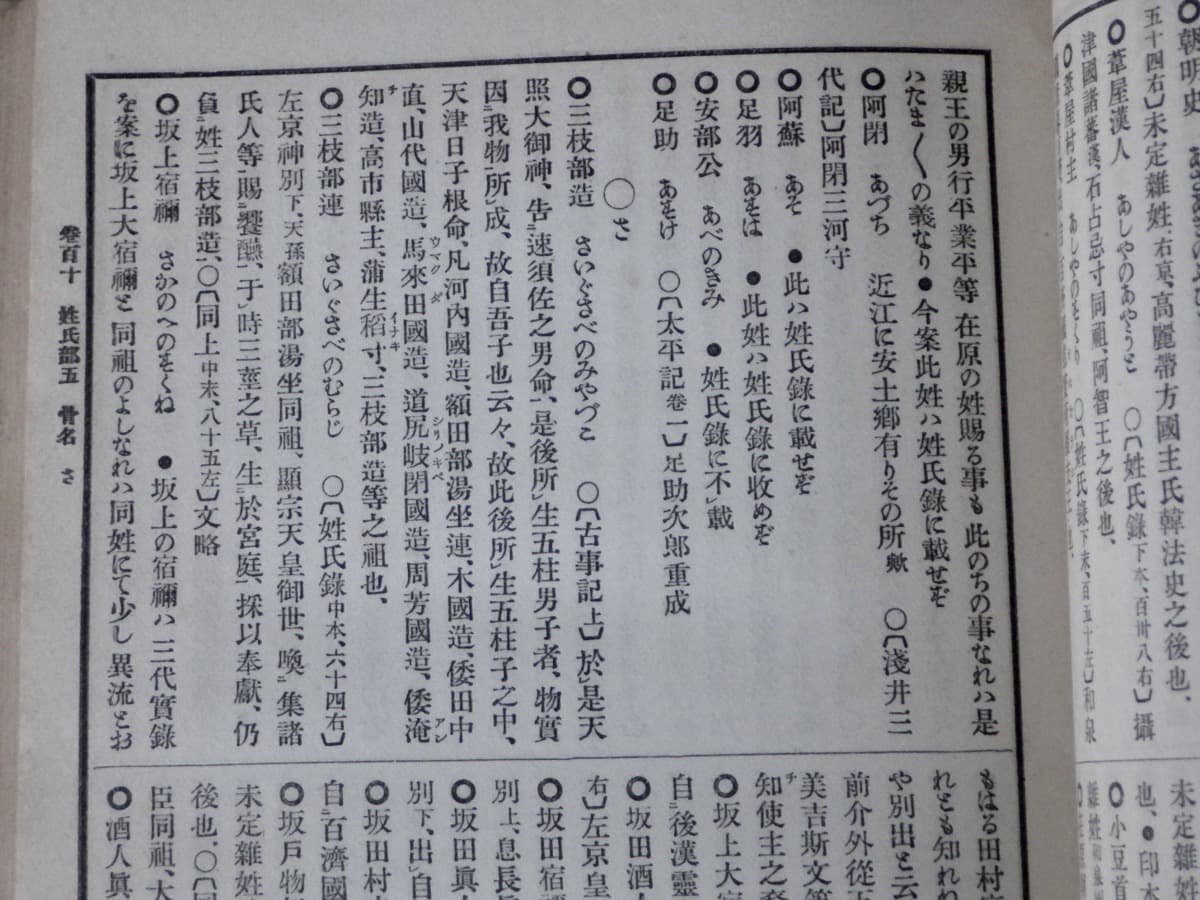 朝明史
五十四右〕未定雜姓、右京、高麗帶方國主氏韓法史之後也、
○葦屋漢人　あしやのあやうど　○〔姓氏錄下本、百卅八右〕攝
津國諸蕃漢、石占忌寸同祖、阿智王之後也、
○葦屋村主　あしやのすくり　○〔姓氏錄下末、百五十左〕和泉
親王の男行平業平等 在原の姓賜る事も 此のちの事なれハ是
ハたま〱の義なり●今案此姓ハ姓氏錄に載せず
○阿閉　あづち　近江に安土鄕有りその所歟　○〔淺井三
代記〕阿閉三河守
○阿蘇　あそ　●此ハ姓氏錄に載せず
○足羽　あすは　●此姓ハ姓氏錄に收めず
○安部公　あべのきみ　●姓氏錄に不㆑載
○足助　あすけ　○〔太平記卷一〕足助次郎重成
○さ
○三枝部造　さいぐさべのみやづこ　○〔古事記上〕於㆑是天
照大御神、告㆓速須佐之男命㆒、是後所㆑生五柱男子者、物實
因㆓我物㆒所㆑成、故自吾子也云々、故此後所㆑生五柱子之中、
天津日子根命、凡河內國造、額田部湯坐連、木國造、倭田中
直、山代國造、馬來田國造、道尻岐閉國造、周芳國造、倭淹
知造、高市縣主、蒲生稻寸、三枝部造等之祖也、
○三枝部連　さいぐさべのむらじ　○〔姓氏錄中本、六十四右〕
左京神別下、天孫額田部湯坐同祖、顯宗天皇御世、喚㆓集諸
氏人等㆒賜㆓饗醼㆒、于㆑時三莖之草、生㆓於宮庭㆒採以奉獻、仍
負㆓姓三枝部造㆒、○〔同上中末、八十五左〕文略
○坂上宿禰　さかのへのすくね　●坂上の宿禰ハ三代實錄
を案に坂上大宿禰と 同祖のよしなれハ同姓にて少し異流とお
卷百十　姓氏部五　骨名　さ
未定雜姓
也、●印本
○小豆首
雜姓
もはる田村
れとも知れね
や別出と云
前介外從五
美吉斯文等
知使主之裔
○坂上大宿
自㆓後漢靈
○坂田酒人
右〕左京皇
○坂田宿
別上、息長
○坂田眞人
別下、出㆑自
○坂田村
自㆓百濟國
○坂戶物
未定雜姓
後也、○〔同
臣同祖、大
○酒人眞